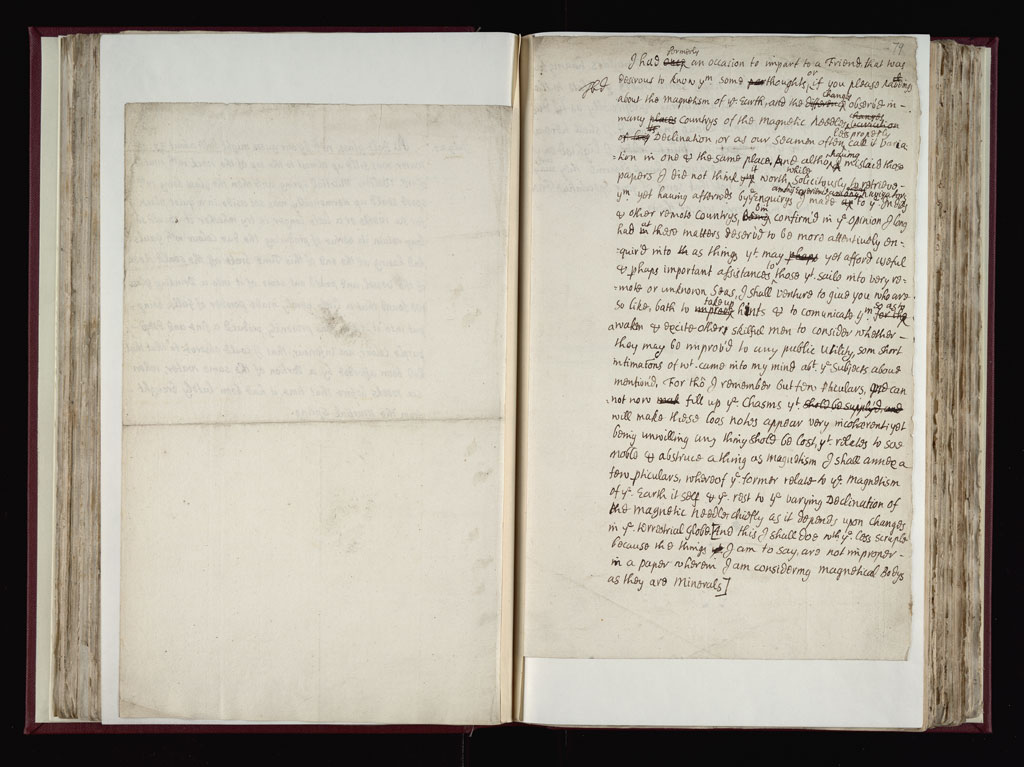 79
formerly
I had once an occasion to impart to a Friend that was
desirous to know ym some thoughts, or if you please
about the magnetism of ye Earth, and the difference changes observ'd in
many places Countrys of the Magnetic Needles changes
Declination, or as our Seamen often less properly call it Varia
=tion in one & the same place, And altho having mislaid those
papers I did not think it worth while Solicitously to retrieve
ym yet having afterwds by ye enquirys I made to ye Indies
& other remote Countrys, been confirm'd in ye opinion I long
had yt these matters deserv'd to be more attentively en=
quir'd into as things yt may phaps yet afford useful
& phaps important assistances to those yt saile into very re
=mote or unknown Seas, I shall venture to give you who are
so like, both to improve take up hints & to comunicate ym so as to
awaken & excite other skilful men to consider whether
they may be improv'd to any publick Utility, som short
intimations of wt came into my mind abt ye Subjects above
mention'd, For tho I remember but few pticulars, and can
not now fill up ye Chasms yt shold be supply'd, and
will make these loos notes appear very incoherent; yet
being unwilling any thing shold be lost, yt relates to soe
noble & abstruce a thing as magnetism I shall annex a
few pticulars, whereof ye former relate to ye magnetism
of ye Earth it self & ye rest to ye varying Declination of
the Magnetic Needle, chiefly as it depends upon changes
in ye terrestrial Globe. [And this I shall doe wth ye less scruple
because the things I am to say, are not improper
in a paper wherein I am considering magnetical Bodys
as they are Minerals]